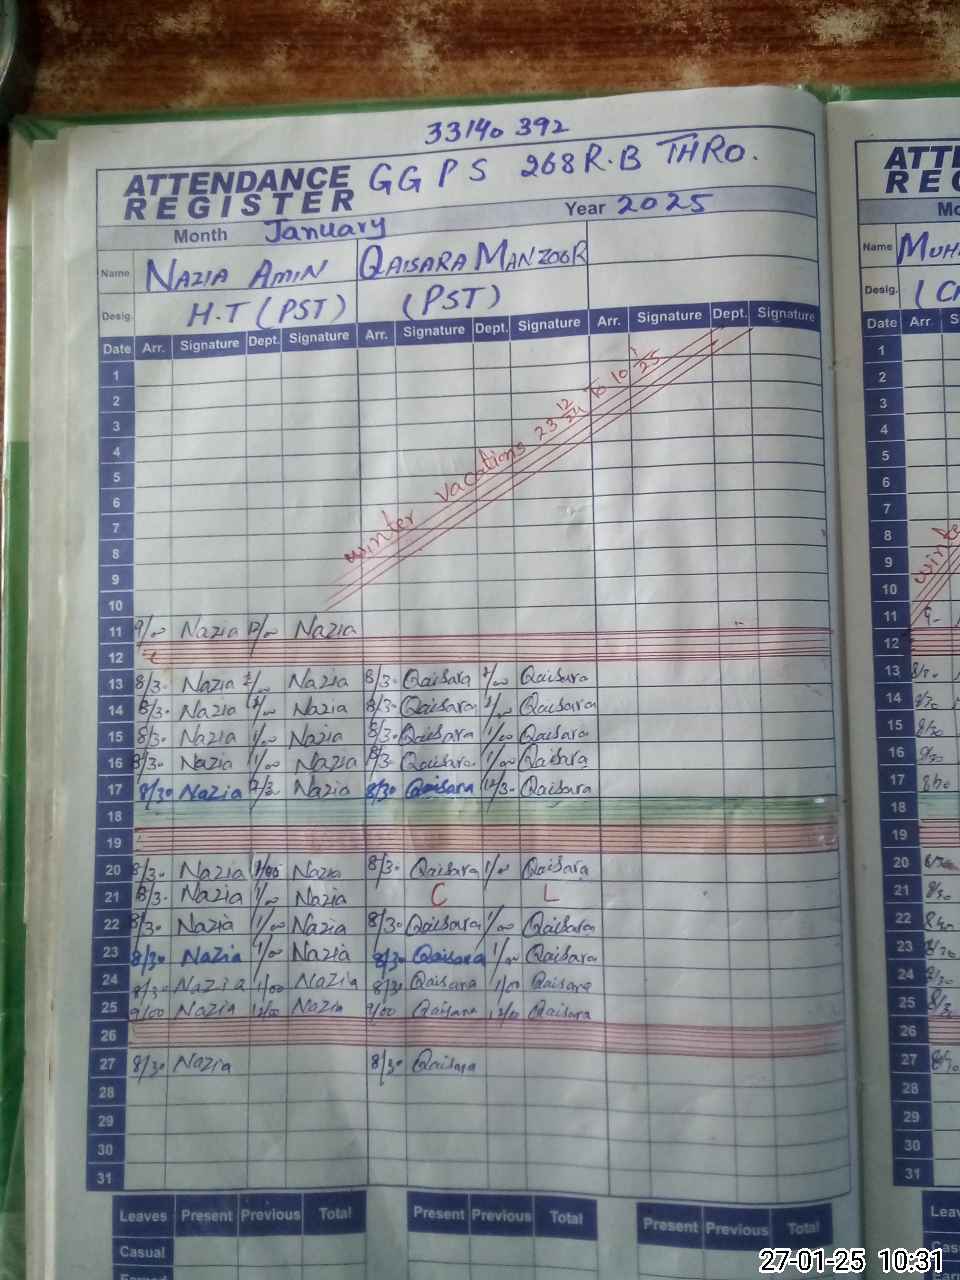 33140 392
ATTENDANCE REGISTER GGPS 268 R.B THRO.
Month January Year 2025
Name NAZIA AMIN QAISARA MANZOOR
Desig. H.T (PST) (PST)
Date Arr. Signature Dept. Signature Arr. Signature Dept. Signature Arr. Signature Dept. Signature
1
2
3
4
5
6
7
8
9
10
winter vacations 23 12/24 To 10 1/25
11 9/00 Nazia 12/00 Nazia
12
13 8/30 Nazia Nazia 8/30 Qaisara Qaisara
14 8/30 Nazia Nazia 8/30 Qaisara Qaisara
15 8/30 Nazia 1/00 Nazia 8/30 Qaisara 1/00 Qaisara
16 8/30 Nazia 1/00 Nazia 8/30 Qaisara 1/00 Qaisara
17 8/30 Nazia 12/30 Nazia 8/30 Qaisara 12/30 Qaisara
18
19
20 8/30 Nazia 1/00 Nazia 8/30 Qaisara 1/00 Qaisara
21 8/30 Nazia 1/00 Nazia C L
22 8/30 Nazia 1/00 Nazia 8/30 Qaisara 1/00 Qaisara
23 8/30 Nazia 1/00 Nazia 8/30 Qaisara 1/00 Qaisara
24 8/30 Nazia 1/00 Nazia 8/30 Qaisara 1/00 Qaisara
25 9/00 Nazia 12/00 Nazia 9/00 Qaisara 12/00 Qaisara
26
27 8/30 Nazia 8/30 Qaisara
28
29
30
31
Leaves Present Previous Total Present Previous Total Present Previous Total
Casual
ATT
REG
Name MUH
Desig.
Date Arr.
1
2
3
4
5
6
7
8
9
10
11
12
13
14
15
16
17
18
19
20
21
22
23
24
25
26
27
28
29
30
31
27-01-25 10:31